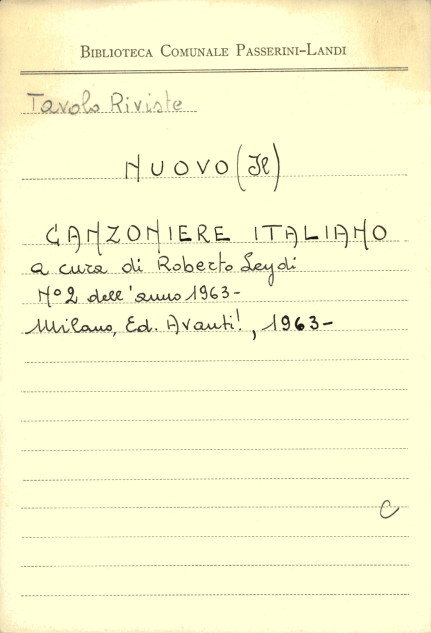 BIBLIOTECA COMUNALE PASSERINI-LANDI
Tavolo Riviste
NUOVO (Il)
CANZONIERE ITALIANO
a cura di Roberto Leydi
N° 2 dell'anno 1963-
Milano, Ed. Avanti!, 1963-
C